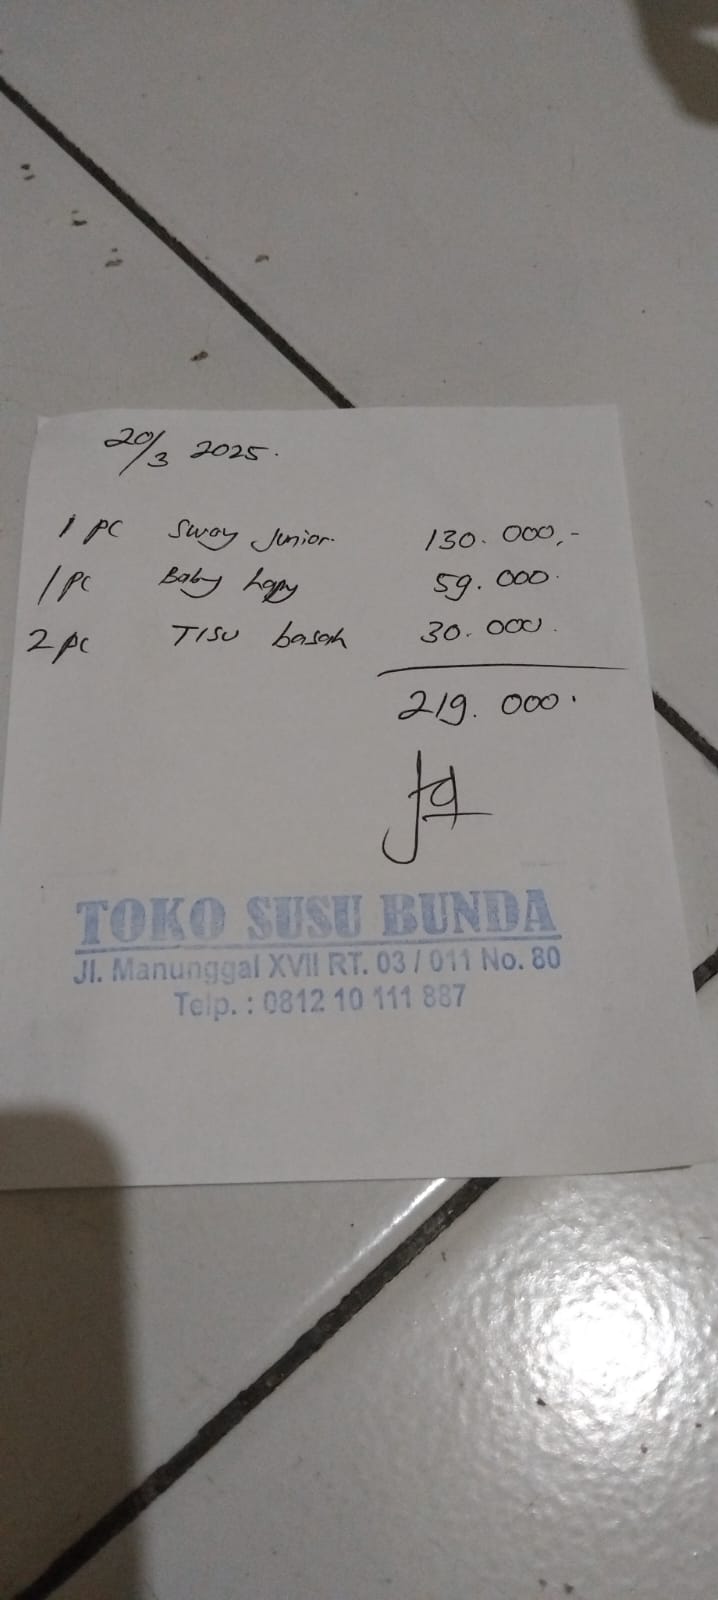 20/3 2025.
1 pc Sway Junior. 130.000,-
1 pc Baby hapy 59.000.
2 pc TISU basah 30.000.
219.000.
TOKO SUSU BUNDA
Jl. Manunggal XVII RT. 03 / 011 No. 80
Telp. : 0812 10 111 887